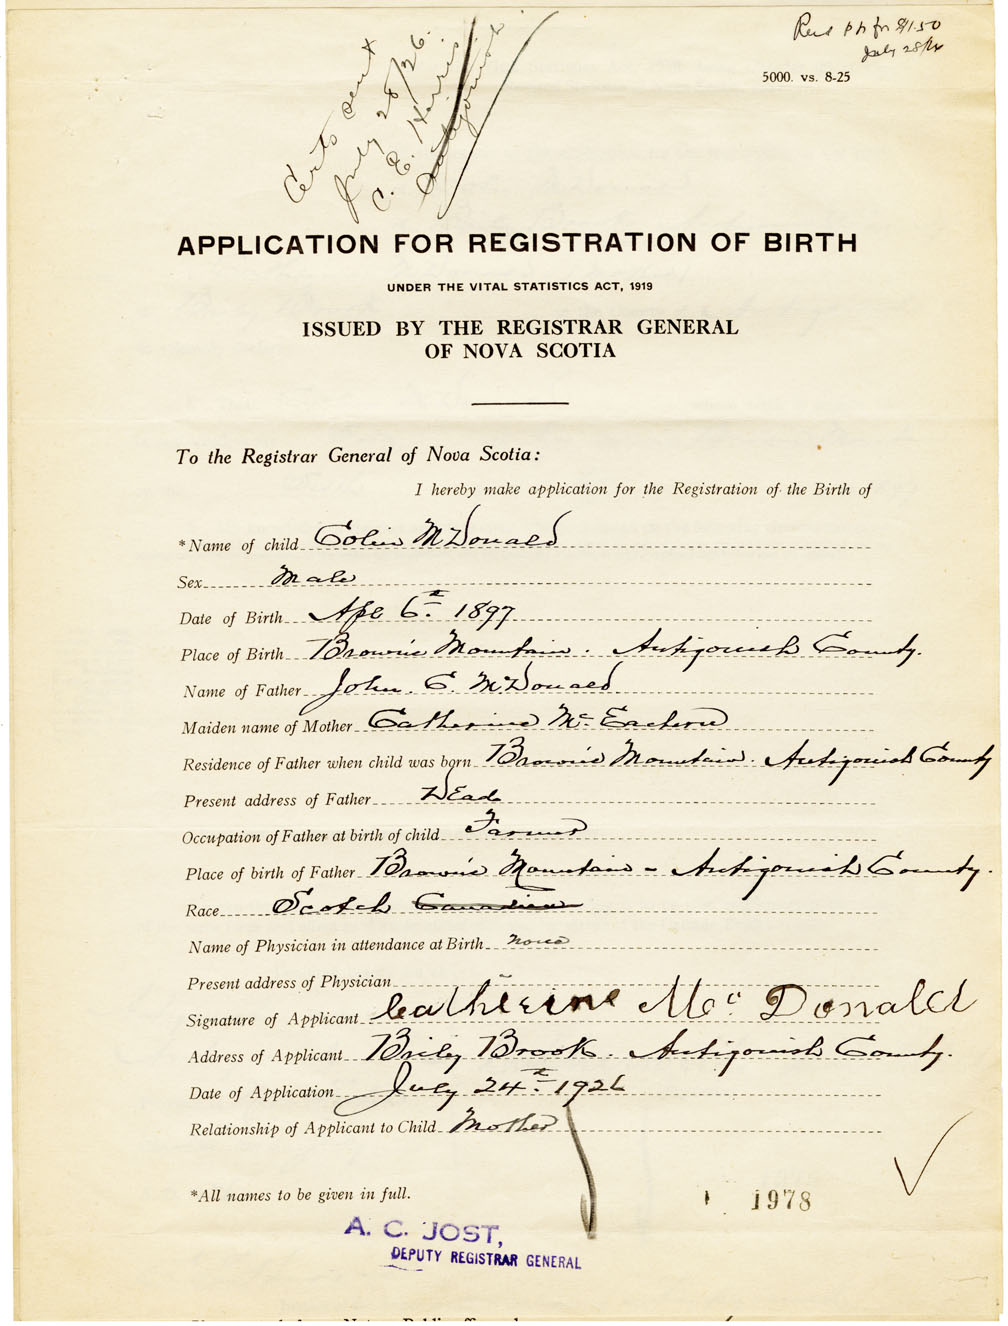 Recd p n for $1.50
July 28/26
5000. vs. 8-25
Certs sent
July 28/26.
C. E. Harris
Antigonish
APPLICATION FOR REGISTRATION OF BIRTH
UNDER THE VITAL STATISTICS ACT, 1919
ISSUED BY THE REGISTRAR GENERAL
OF NOVA SCOTIA
To the Registrar General of Nova Scotia:
I hereby make application for the Registration of the Birth of
*Name of child Colin McDonald
Sex Male
Date of Birth Apl 6th 1897
Place of Birth Brown's Mountain. Antigonish County.
Name of Father John. C. McDonald
Maiden name of Mother Catherine McEachern
Residence of Father when child was born Brown's Mountain. Antigonish County
Present address of Father Dead
Occupation of Father at birth of child Farmer
Place of birth of Father Brown's Mountain - Antigonish County.
Race Scotch Canadian
Name of Physician in attendance at Birth none
Present address of Physician
Signature of Applicant Catherine Mc Donald
Address of Applicant Brily Brook. Antigonish County.
Date of Application July 24th 1926
Relationship of Applicant to Child Mother
*All names to be given in full.
1978
A. C. JOST,
DEPUTY REGISTRAR GENERAL